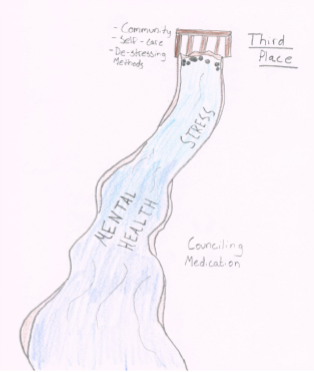 - Community
- Self-care
- De-stressing
Methods
Third
Place
STRESS
MENTAL
HEALTH
Counciling
Medication